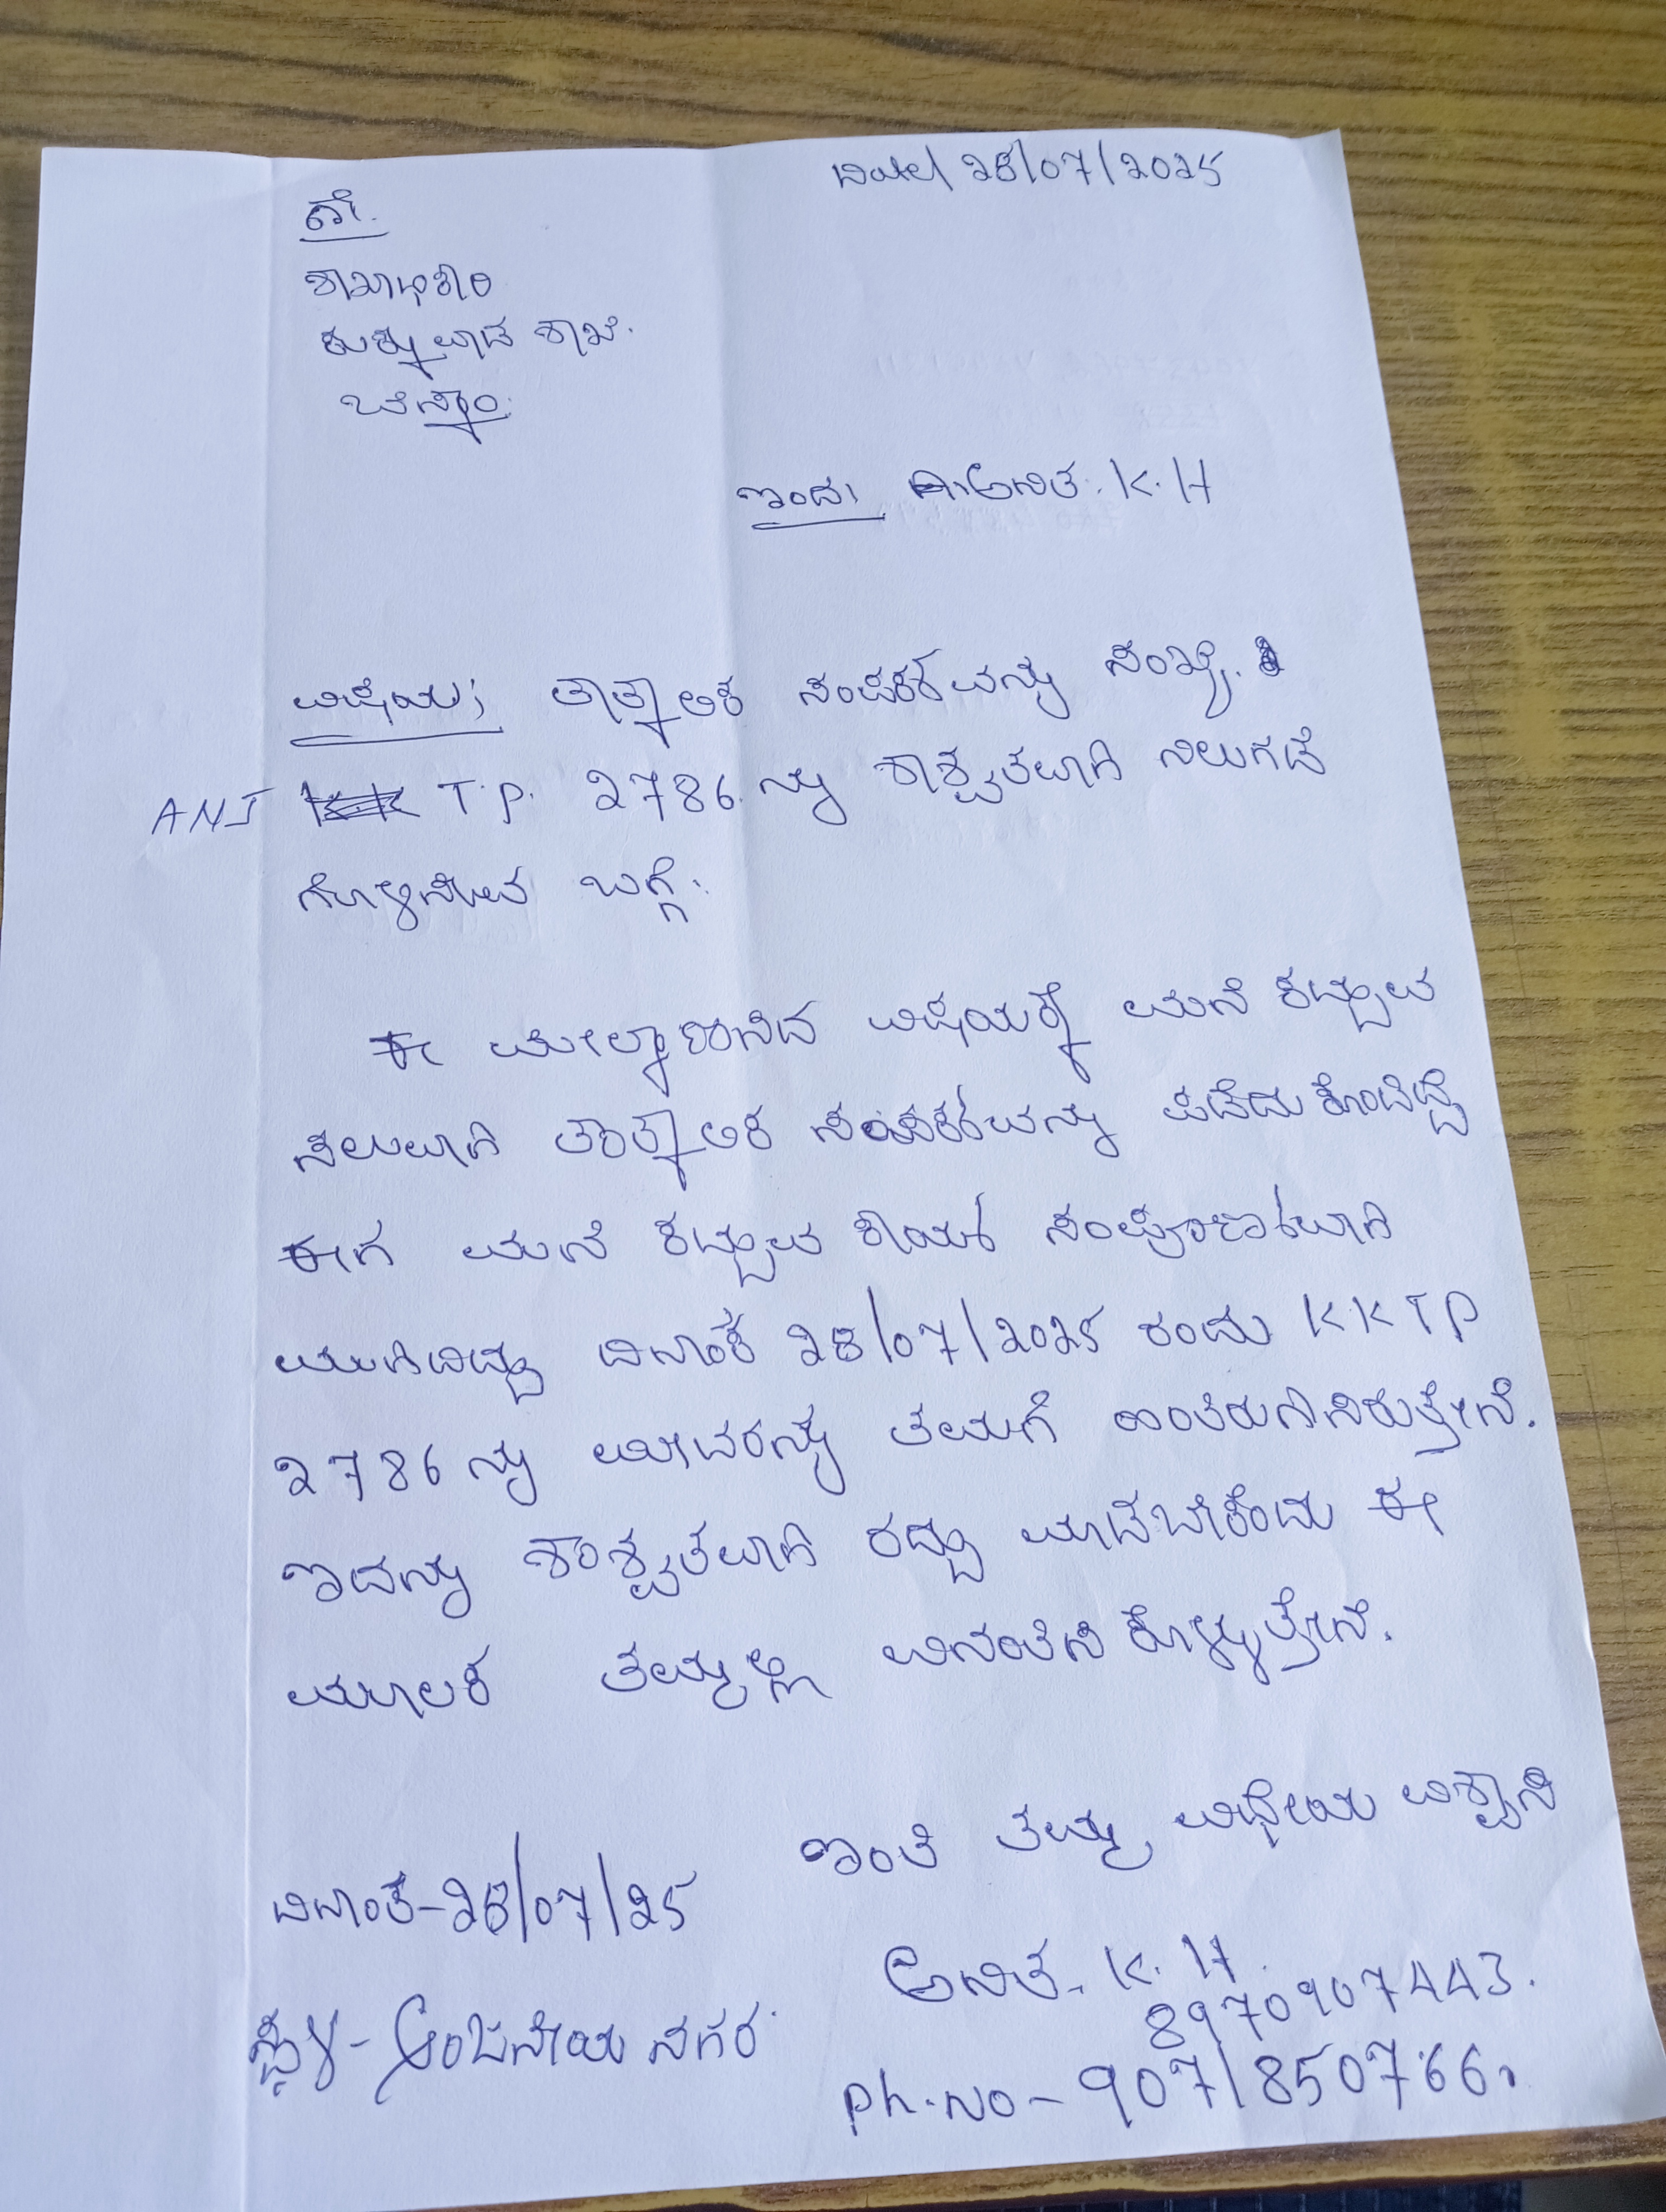 Date/ 28/07/2025
ಗೆ.
ಶಾಖಾಧಿಕಾರಿ
ಕುಕ್ಕುವಾಡ ಶಾಖೆ.
ಇಂದ, ಅನಿತ. K. H
ವಿಷಯ; ತಾತ್ಕಾಲಿಕ ಸಂಪರ್ಕವನ್ನು ಸಂಖ್ಯೆ.
ANJ T.P. 2786.ನ್ನು ಶಾಶ್ವತವಾಗಿ ನಿಲುಗಡೆ
ಗೊಳ್ಳಿಸುವ ಬಗ್ಗೆ.
ಈ ಮೇಲ್ಕಾಣಿಸಿದ ವಿಷಯಕ್ಕೆ ಮನೆ ಕಟ್ಟುವ
ಸಲುವಾಗಿ ತಾತ್ಕಾಲಿಕ ಸಂಪರ್ಕವನ್ನು ಪಡೆದುಕೊಂಡಿದ್ದೆ
ಈಗ ಮನೆ ಕಟ್ಟುವ ಕಾರ್ಯ ಸಂಪೂರ್ಣವಾಗಿ
ಮುಗಿದಿದ್ದು ದಿನಾಂಕ 28/07/2025 ರಂದು KKTP
2786 ನ್ನು ಮೀಟರನ್ನು ತಮಗೆ ಹಿಂತಿರುಗಿಸಿರುತ್ತೇನೆ.
ಇದನ್ನು ಶಾಶ್ವತವಾಗಿ ರದ್ದು ಮಾಡಬೇಕೆಂದು ಈ
ಮೂಲಕ ತಮ್ಮಲ್ಲಿ ವಿನಂತಿಸಿಕೊಳ್ಳುತ್ತೇನೆ.
ಇಂತಿ ತಮ್ಮ ವಿಧೇಯ ವಿಶ್ವಾಸಿ
ದಿನಾಂಕ-28/07/25
ಅನಿತ. K. H.
8970907443.
ಸ್ಥಳ- ಆಂಜನೇಯ ನಗರ.
Ph.no- 9071850766.